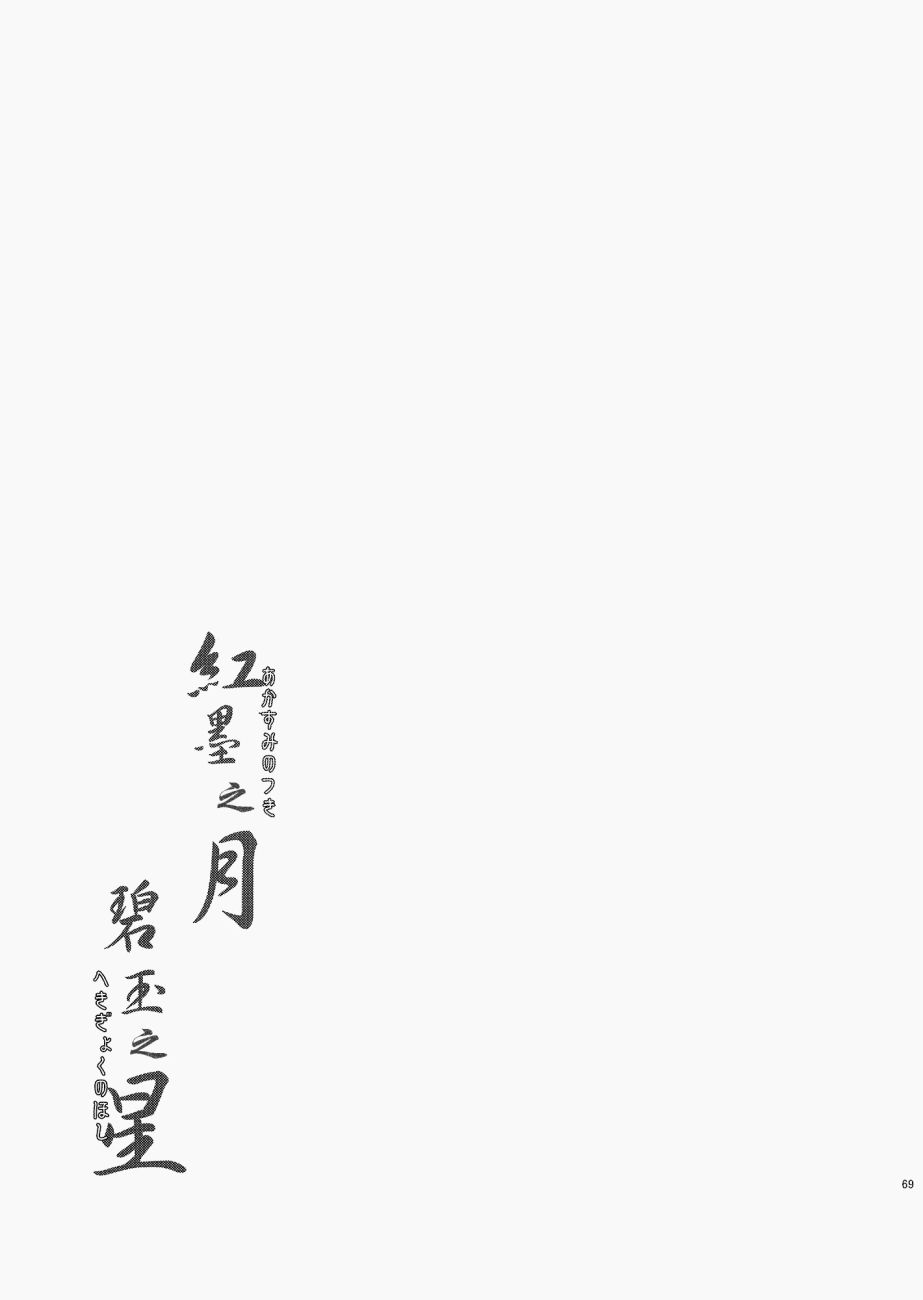 紅墨之月
あかすみのつき
碧玉之星
へきぎょくのほし
69